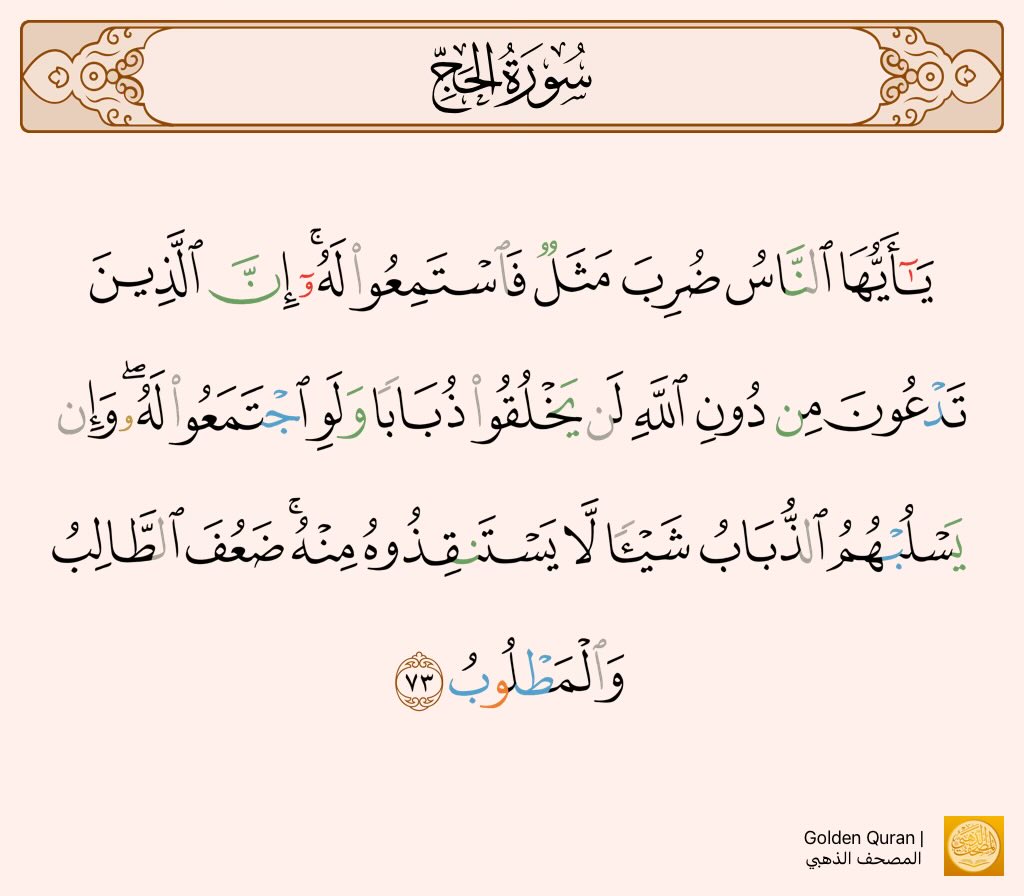 سُورَةُ الحَجِّ
يَـٰٓأَيُّهَا ٱلنَّاسُ ضُرِبَ مَثَلٌ فَٱسْتَمِعُوا۟ لَهُۥٓ ۚ إِنَّ ٱلَّذِينَ
تَدْعُونَ مِن دُونِ ٱللَّهِ لَن يَخْلُقُوا۟ ذُبَابًا وَلَوِ ٱجْتَمَعُوا۟ لَهُۥ ۖ وَإِن
يَسْلُبْهُمُ ٱلذُّبَابُ شَيْـًٔا لَّا يَسْتَنقِذُوهُ مِنْهُ ۚ ضَعُفَ ٱلطَّالِبُ
وَٱلْمَطْلُوبُ ٧٣
Golden Quran |
المصحف الذهبي